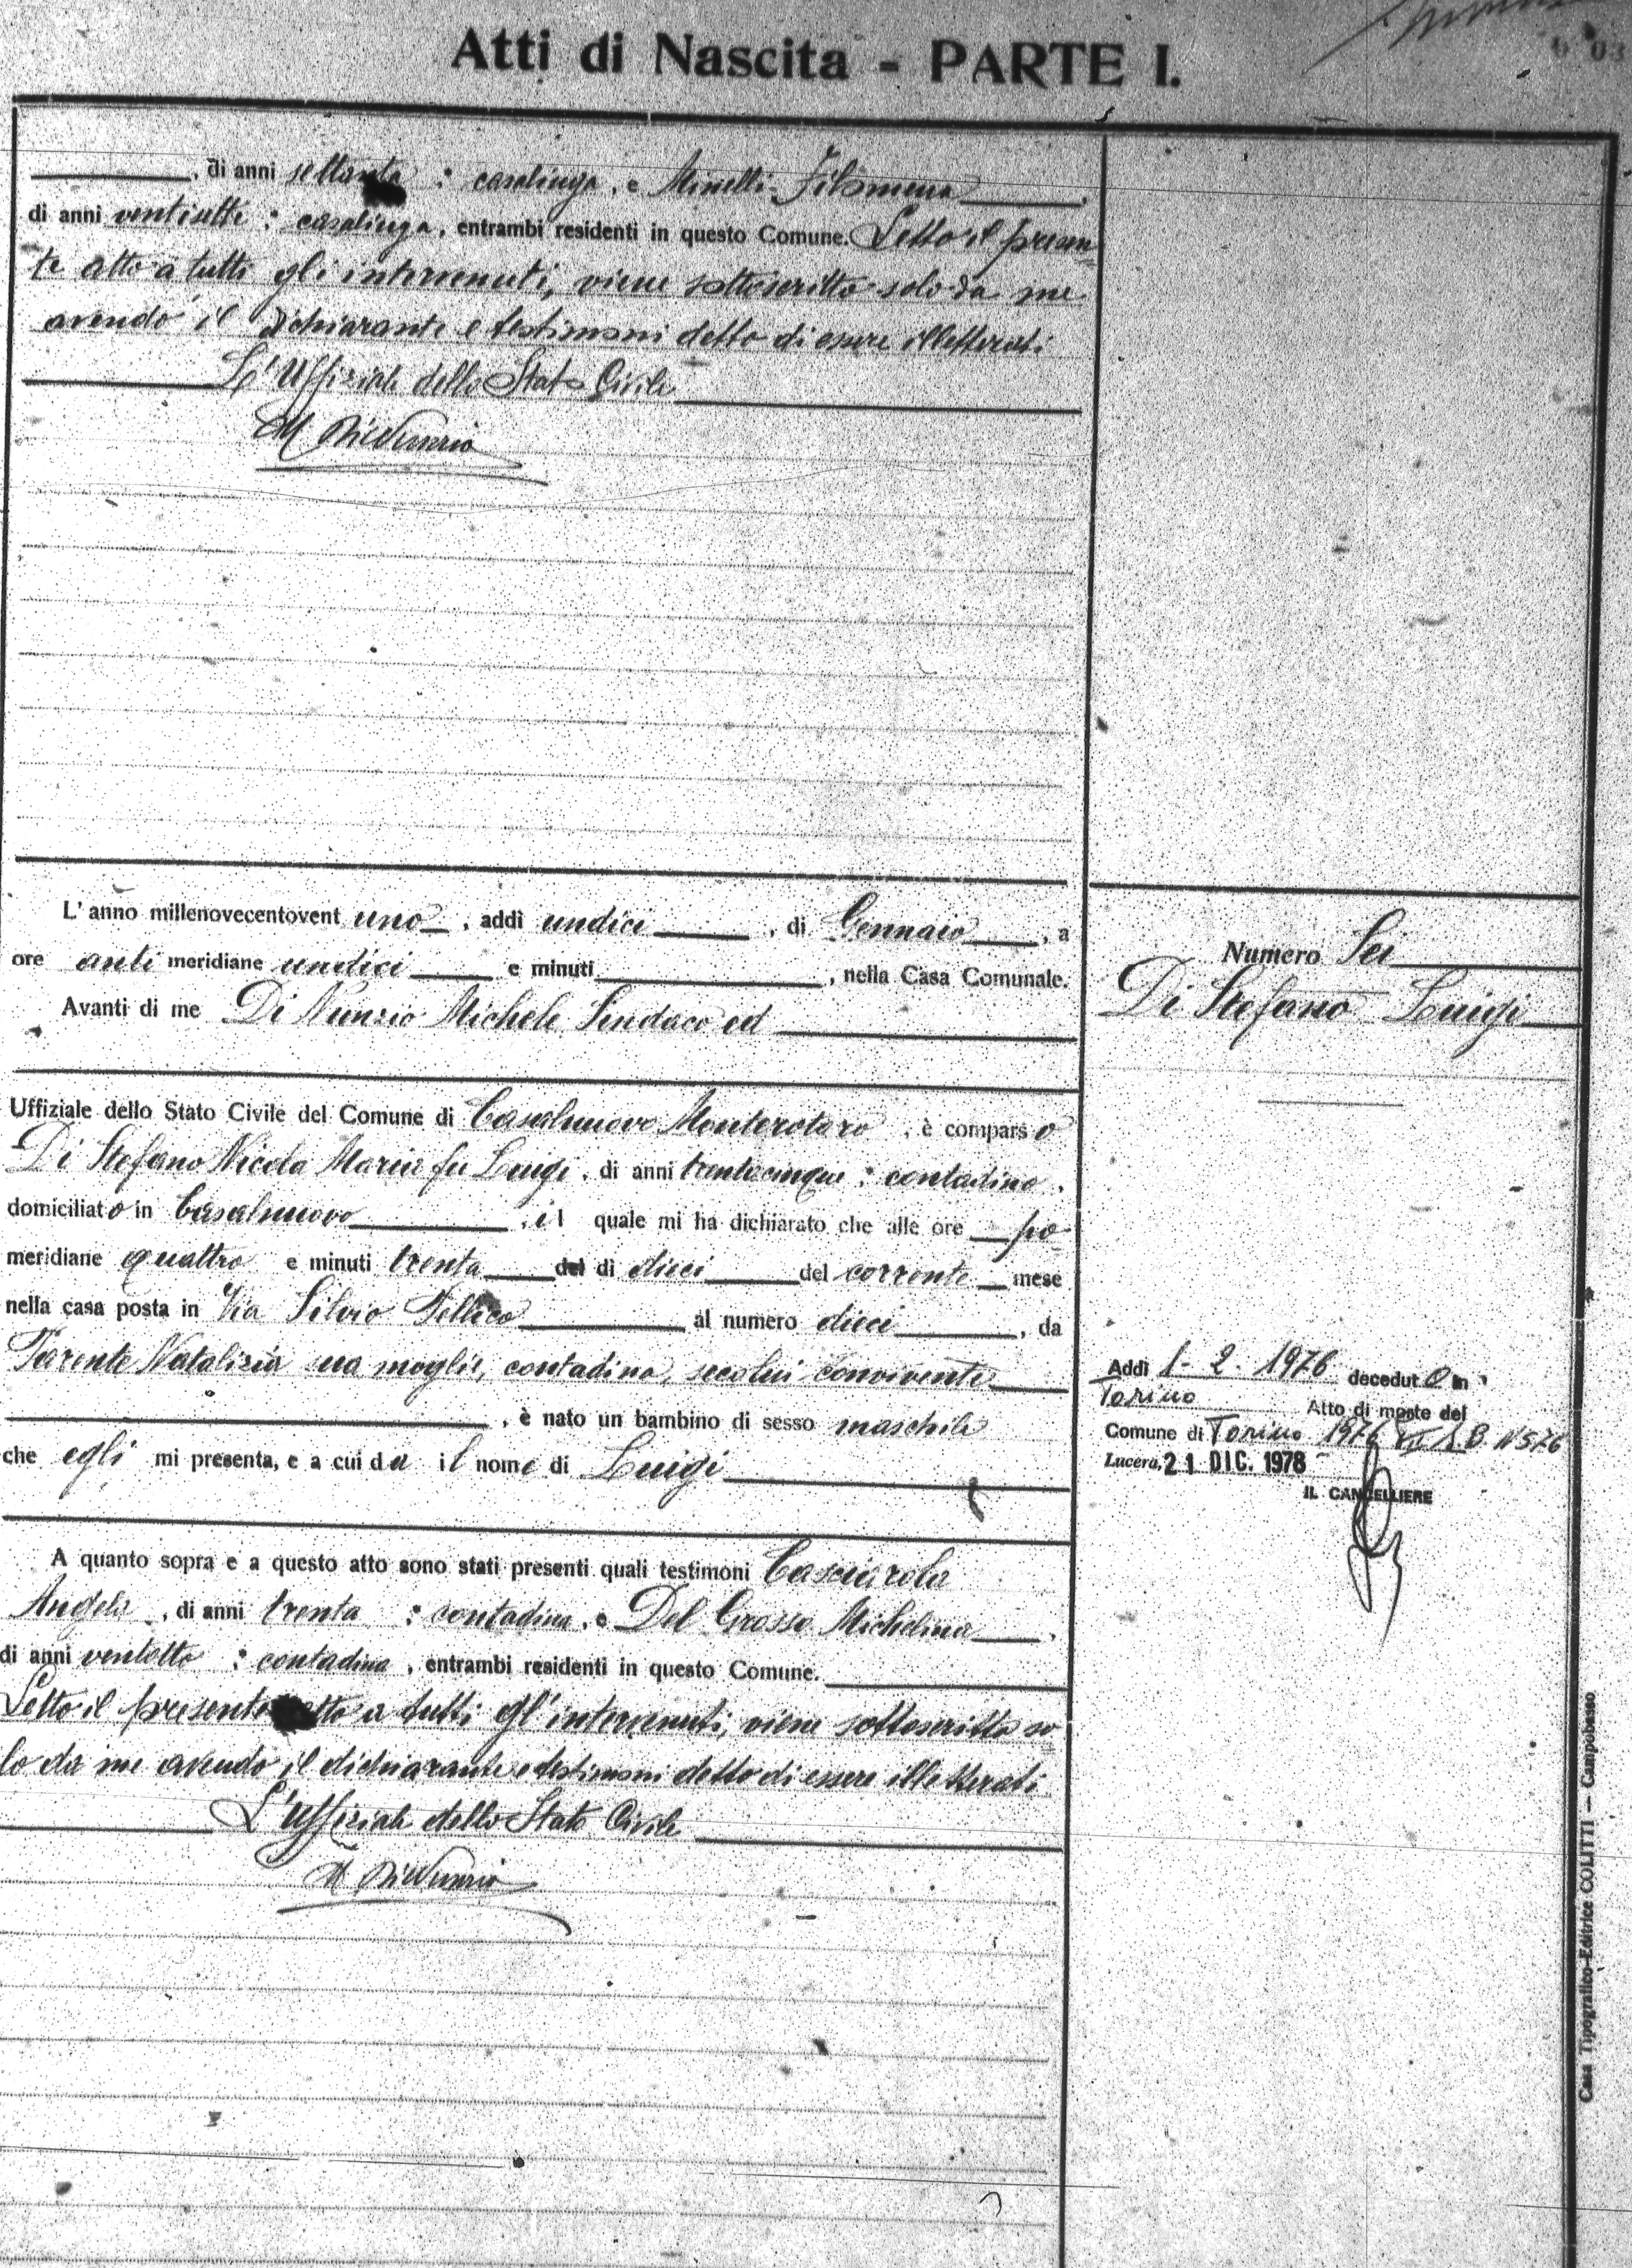 Atti di Nascita - PARTE I.
, di anni settanta : casalinga, e Minelli Filomena,
di anni ventisette : casalinga, entrambi residenti in questo Comune. Letto il presen=
te atto a tutti gli intervenuti, viene sottoscritto solo da me
avendo il dichiarante e testimoni detto di essere illetterati
L'Uffiziale dello Stato Civile
M DiNunzio
L'anno millenovecentovent uno, addì undici, di Gennaio, a
ore anti meridiane undici e minuti, nella Casa Comunale.
Avanti di me Di Nunzio Michele Sindaco ed
Uffiziale dello Stato Civile del Comune di Casalnuovo Monterotaro, è comparso
Di Stefano Nicola Maria fu Luigi, di anni trentacinque : contadino,
domiciliato in Casalnuovo, il quale mi ha dichiarato che alle ore po
meridiane quattro e minuti trenta del di dieci del corrente mese
nella casa posta in Via Silvio Pellico al numero dieci, da
Parente Natalizia sua moglie, contadina, secolui convivente
, è nato un bambino di sesso maschile
che egli mi presenta, e a cui da il nome di Luigi
A quanto sopra e a questo atto sono stati presenti quali testimoni Casciarola
Angela, di anni trenta : contadina, e Del Grosso Michelina,
di anni ventotto : contadina, entrambi residenti in questo Comune.
Letto il presente atto a tutti gl'intervenuti, viene sottoscritto so=
lo da me avendo il dichiarante e testimoni detto di essere illetterati
L'Uffiziale dello Stato Civile
M DiNunzio
Numero Sei
Di Stefano Luigi
Addì 1-2-1976 deceduto in
Torino Atto di morte del
Comune di Torino 1976 B. N 576
Lucera, 21 DIC. 1978
IL CANCELLIERE
Casa Tipografico-Editrice COLITTI — Campobasso